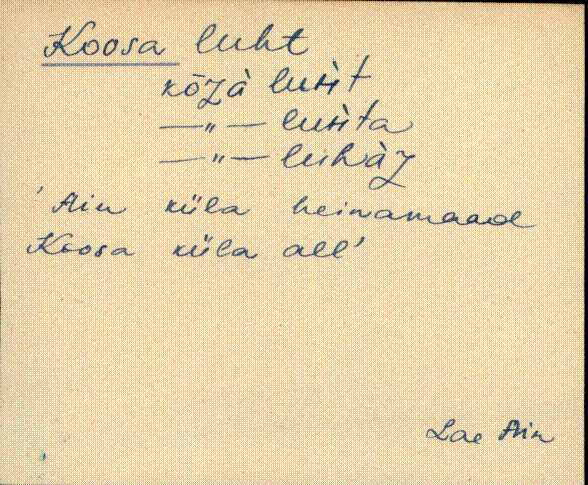 Koosa luht
kōʒà luht
—„— luhta
—„— luhàʒ
'Ain küla heinamaad
Koosa küla all'
Lae Ain